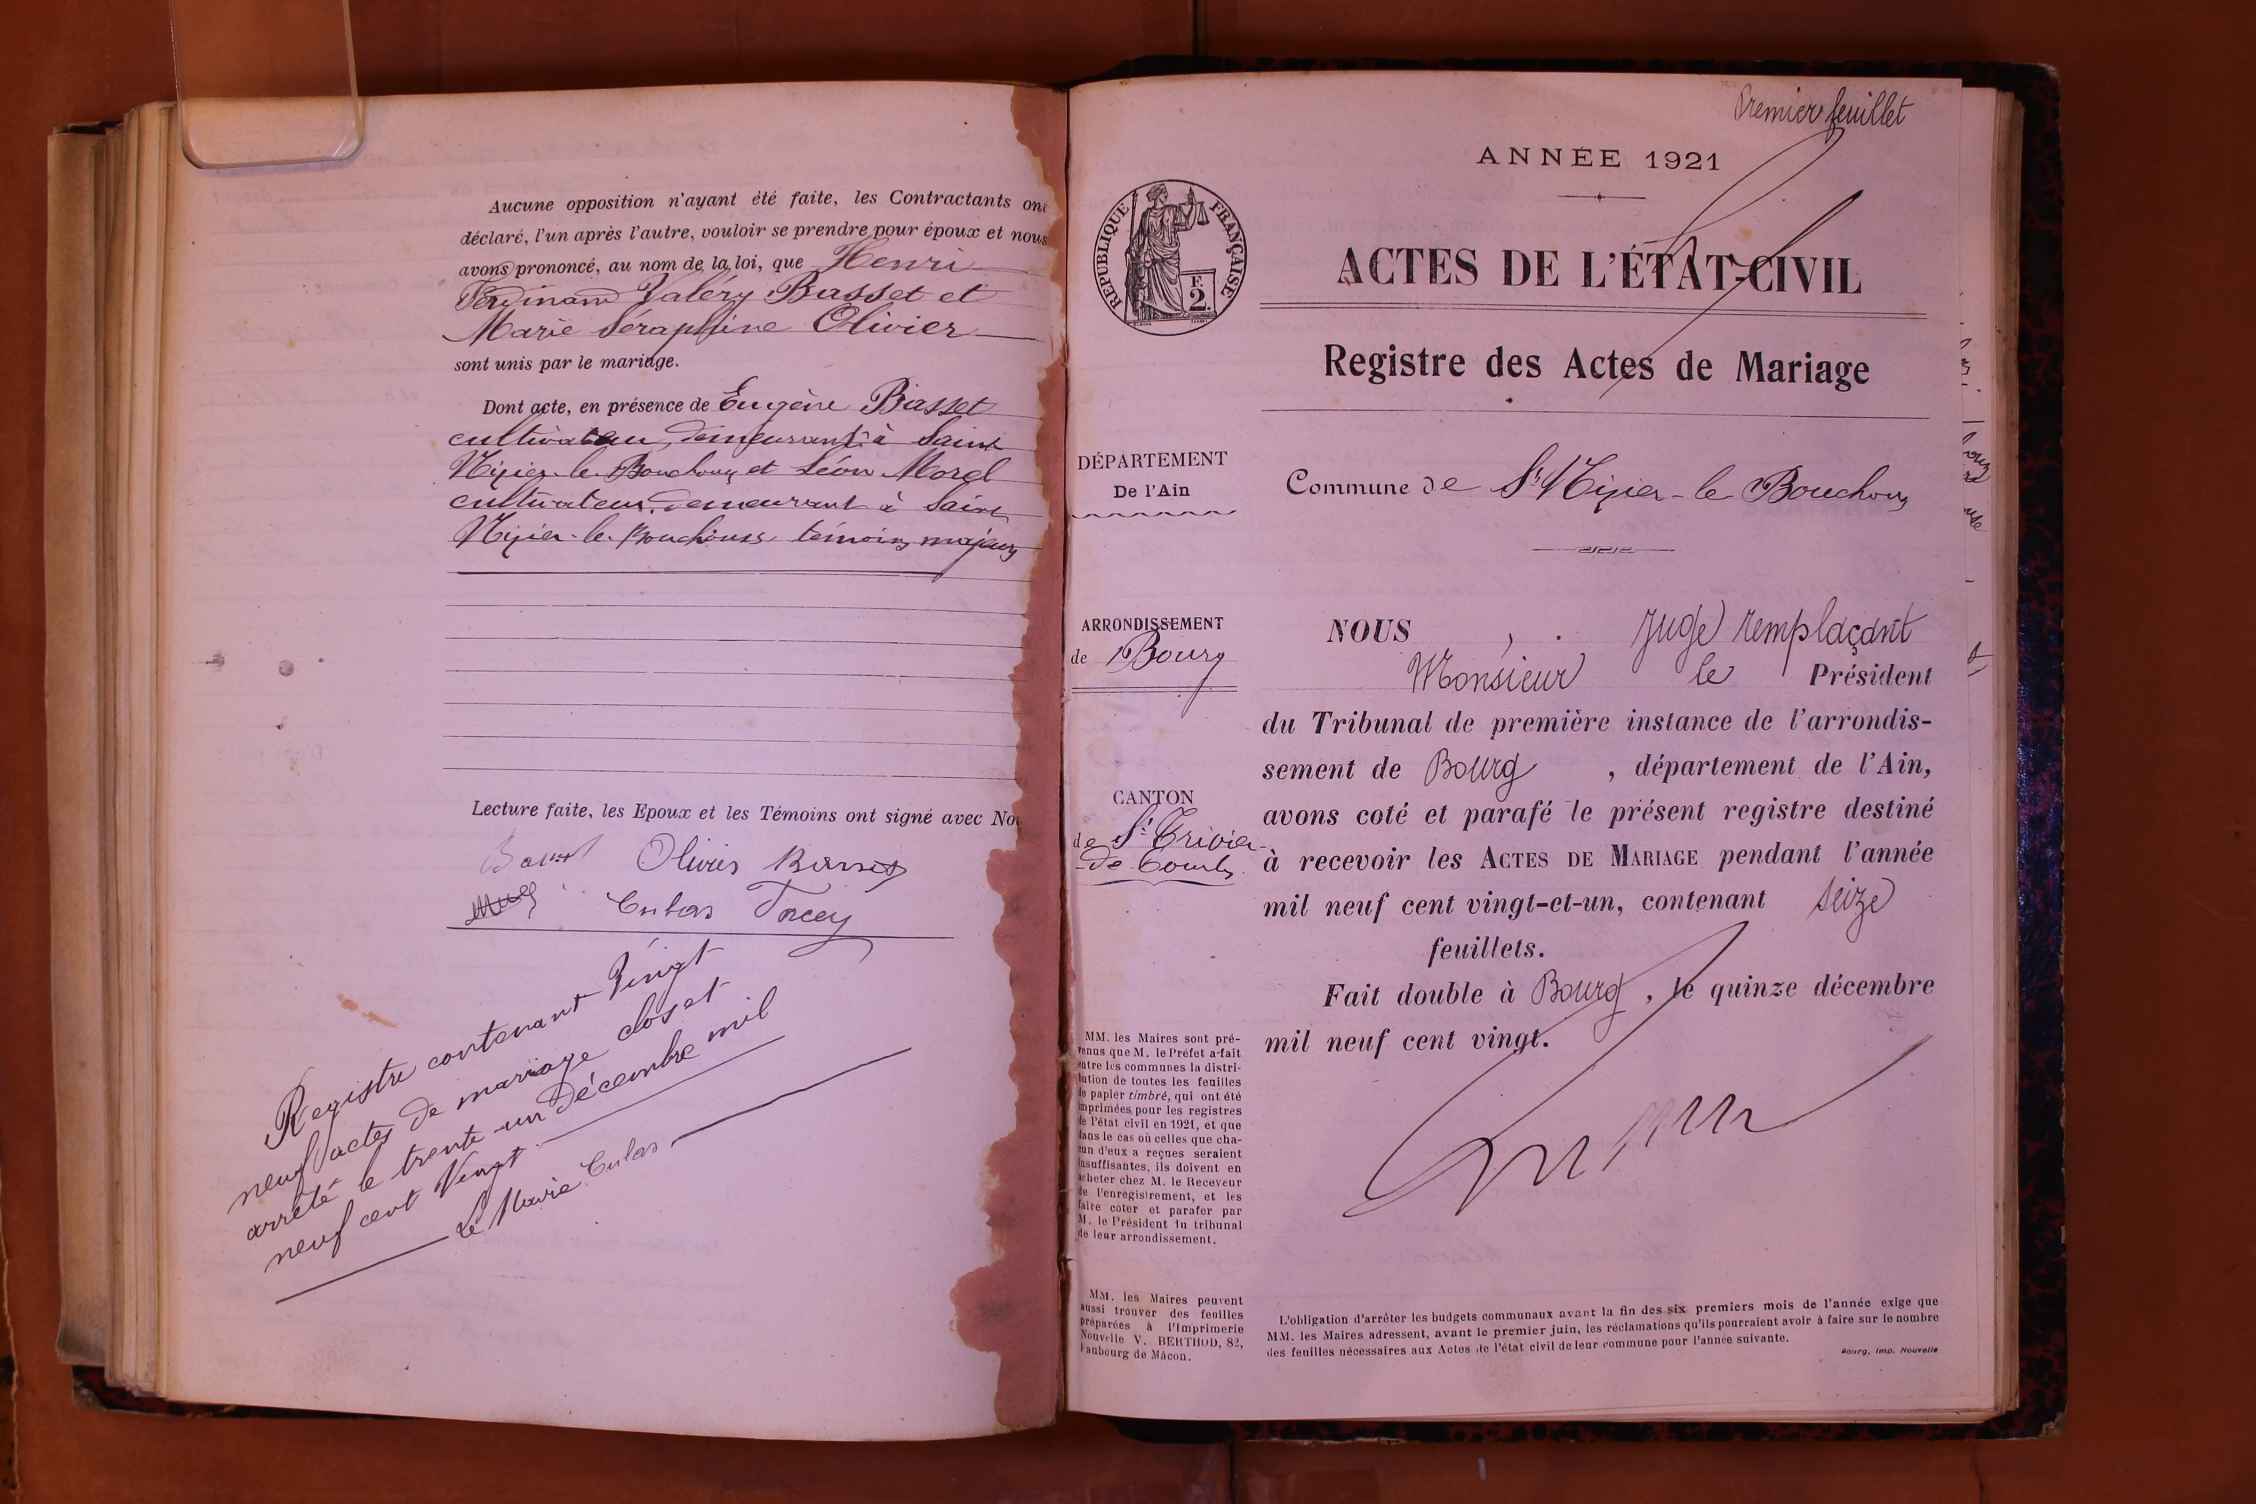 Aucune opposition n'ayant été faite, les Contractants ont
déclaré, l'un après l'autre, vouloir se prendre pour époux et nous
avons prononcé, au nom de la loi, que Henri
Ferdinand Valéry Basset et
Marie Séraphine Olivier
sont unis par le mariage.
Dont acte, en présence de Eugène Basset
cultivateur, demeurant à Saint
Nizier-le-Bouchoux et Léon Morel
cultivateur demeurant à Saint
Nizier-le-Bouchoux témoins majeurs
Lecture faite, les Epoux et les Témoins ont signé avec Nous
Basset Olivier Basset
Culas Torcey
Registre contenant Vingt
neuf actes de mariage clos et
arrêté le trente un Décembre mil
neuf cent Vingt
Le Maire Culas
Premier feuillet
ANNÉE 1921
RÉPUBLIQUE FRANÇAISE
2 F.
ACTES DE L'ÉTAT-CIVIL
Registre des Actes de Mariage
DÉPARTEMENT
De l'Ain
Commune de St Nizier-le Bouchoux
ARRONDISSEMENT
de Bourg
CANTON
de St Trivier-
de Courtes
NOUS, Juge remplaçant
Monsieur le Président
du Tribunal de première instance de l'arrondis-
sement de Bourg, département de l'Ain,
avons coté et parafé le présent registre destiné
à recevoir les ACTES DE MARIAGE pendant l'année
mil neuf cent vingt-et-un, contenant seize
feuillets.
Fait double à Bourg, le quinze décembre
mil neuf cent vingt.
MM. les Maires sont pré-
venus que M. le Préfet a fait
entre les communes la distri-
bution de toutes les feuilles
de papier timbré, qui ont été
imprimées pour les registres
de l'état civil en 1921, et que
dans le cas où celles que cha-
cun d'eux a reçues seraient
insuffisantes, ils doivent en
acheter chez M. le Receveur
de l'enregistrement, et les
faire coter et parafer par
M. le Président du tribunal
de leur arrondissement.
MM. les Maires peuvent
aussi trouver des feuilles
préparées à l'Imprimerie
Nouvelle V. BERTHOD, 82,
Faubourg de Mâcon.
L'obligation d'arrêter les budgets communaux avant la fin des six premiers mois de l'année exige que
MM. les Maires adressent, avant le premier juin, les réclamations qu'ils pourraient avoir à faire sur le nombre
des feuilles nécessaires aux Actes de l'état civil de leur commune pour l'année suivante.
Bourg, Imp. Nouvelle